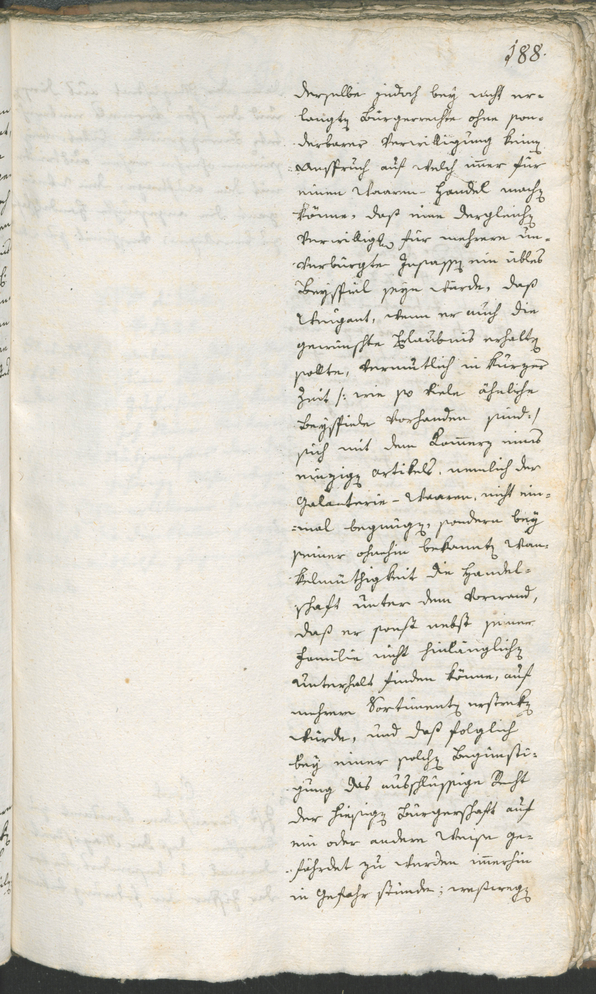 188.
derselbe jedoch bey nicht er-
langten Bürgerrechte ohne son-
derbarer Verwilligung keinen
Anspruch auf welch immer für
einen Waaren-Handel machen
könne, daß eine dergleichen
Verwilligung für mehrere un-
verbürgte Insassen ein übles
Beyspiel seyn würde, daß
Weigant, wenn er auch die
gewünschte Erlaubnis erhalten
sollte, vermutlich in kurzer
Zeit /: wie so viele ähnliche
Beyspiele vorhanden sind :/
sich mit dem Commerz eines
einzigen Artikels, nemlich der
Galanterie-Waaren, nicht ein-
mal begnügen, sondern bey
seiner ohnehin bekannten Wan-
kelmüthigkeit die Handel-
schaft unter dem Vorwand,
daß er sonst nebst seiner
Familie nicht hinlänglichen
Unterhalt finden könne, auf
mehrere Sortimenten erstrecken
würde, und daß folglich
bey einer solchen Begünsti-
gung das ausschlüssige Recht
der hiesigen Bürgerschaft auf
ein oder andere Weise ge-
fährdet zu werden immerhin
in Gefahr stünde; weßwegen